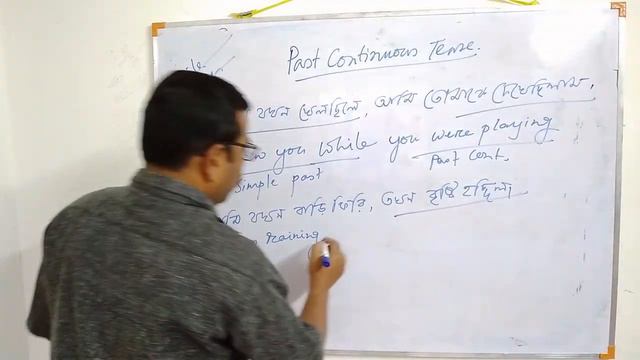 Past Continuous Tense.
যখন খেলছিলে, আমি তোমাকে দেখেছিলাম.
you while you were playing
Simple past Past Cont.
যখন বাড়ি ফিরি, তখন বৃষ্টি হচ্ছিল।
raining